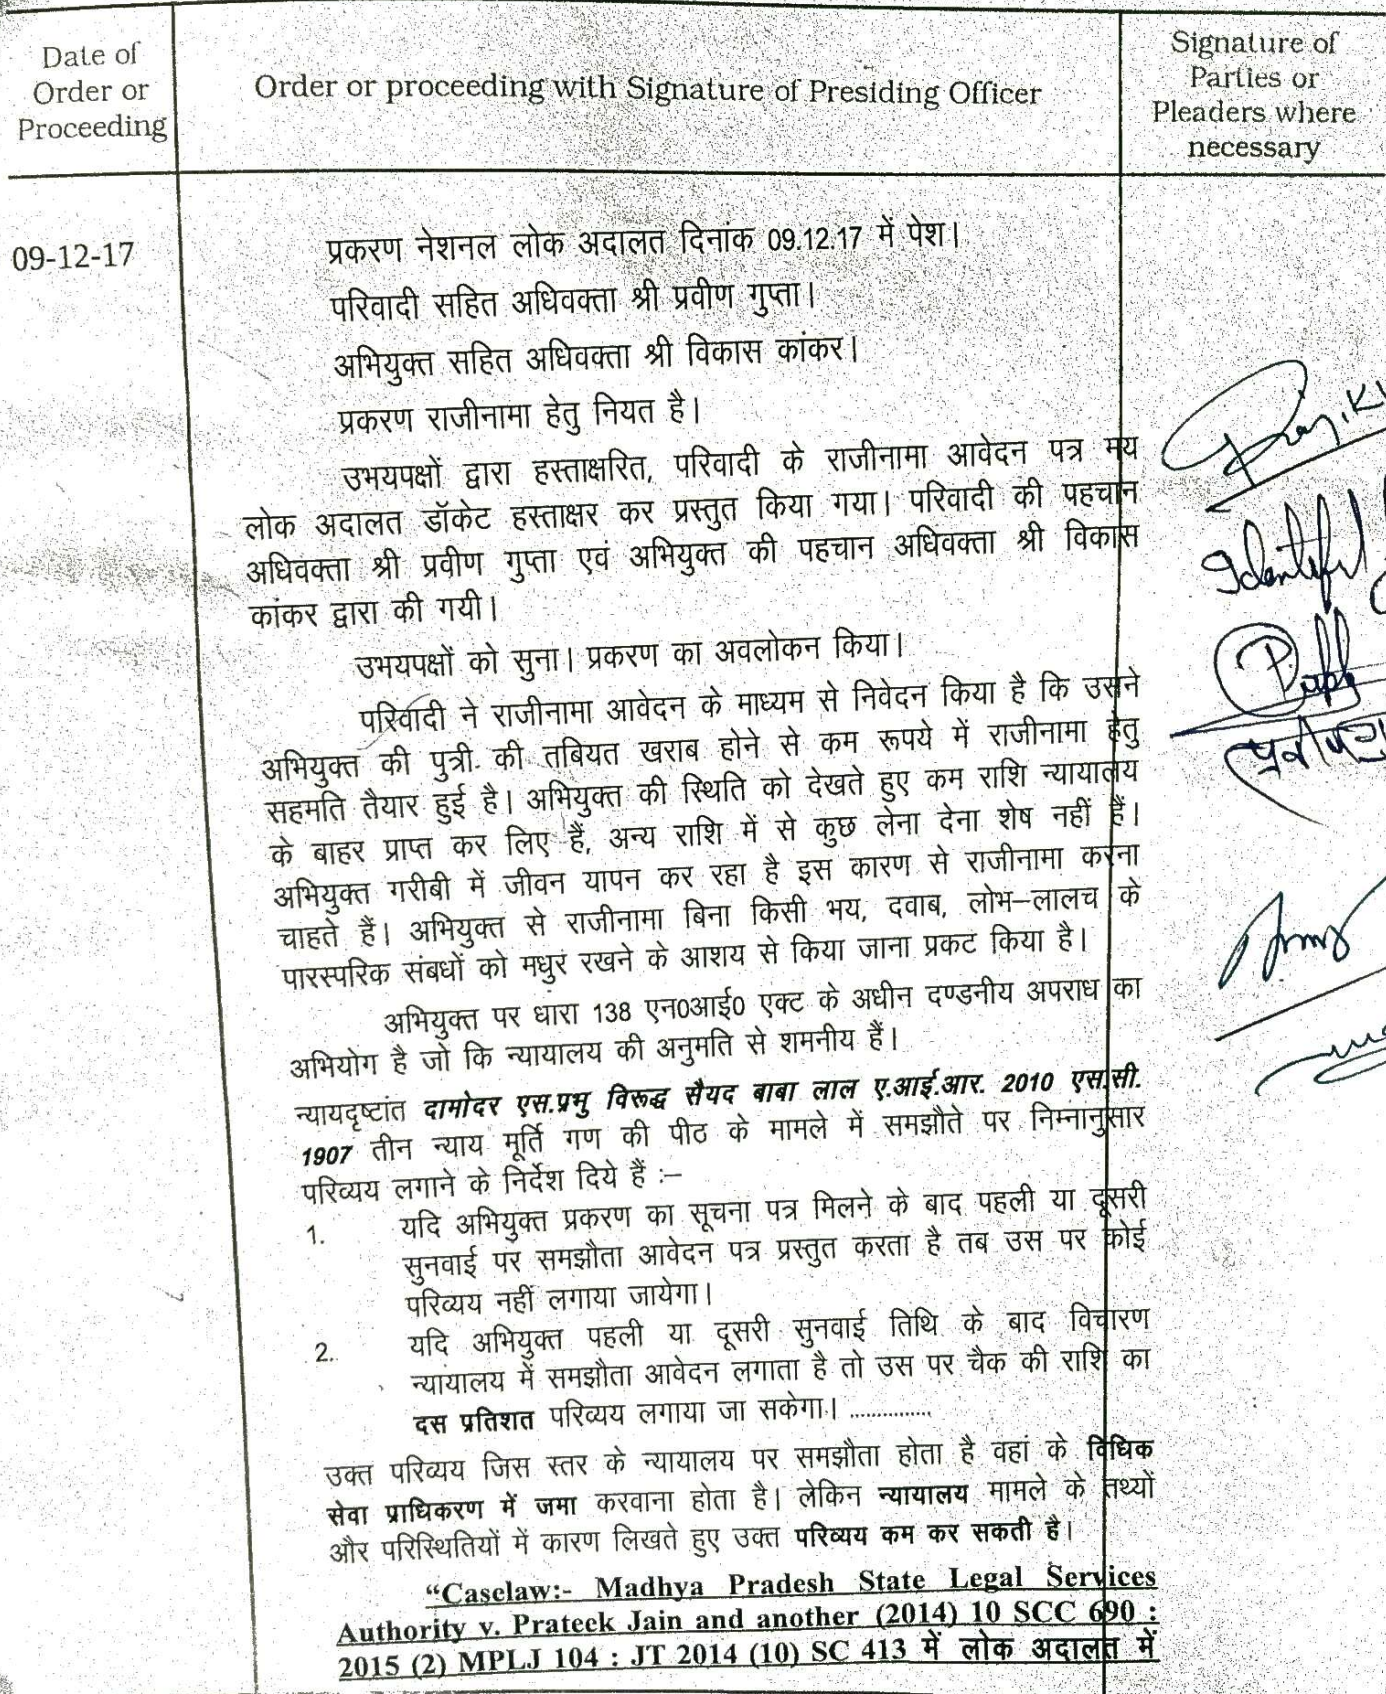 Date of
Order or
Proceeding
Order or proceeding with Signature of Presiding Officer
Signature of
Parties or
Pleaders where
necessary
09-12-17
प्रकरण नेशनल लोक अदालत दिनांक 09.12.17 में पेश।
परिवादी सहित अधिवक्ता श्री प्रवीण गुप्ता।
अभियुक्त सहित अधिवक्ता श्री विकास कांकर।
प्रकरण राजीनामा हेतु नियत है।
उभयपक्षों द्वारा हस्ताक्षरित, परिवादी के राजीनामा आवेदन पत्र मय
लोक अदालत डॉकेट हस्ताक्षर कर प्रस्तुत किया गया। परिवादी की पहचान
अधिवक्ता श्री प्रवीण गुप्ता एवं अभियुक्त की पहचान अधिवक्ता श्री विकास
कांकर द्वारा की गयी।
उभयपक्षों को सुना। प्रकरण का अवलोकन किया।
परिवादी ने राजीनामा आवेदन के माध्यम से निवेदन किया है कि उसने
अभियुक्त की पुत्री की तबियत खराब होने से कम रूपये में राजीनामा हेतु
सहमति तैयार हुई है। अभियुक्त की स्थिति को देखते हुए कम राशि न्यायालय
के बाहर प्राप्त कर लिए हैं, अन्य राशि में से कुछ लेना देना शेष नहीं हैं।
अभियुक्त गरीबी में जीवन यापन कर रहा है इस कारण से राजीनामा करना
चाहते हैं। अभियुक्त से राजीनामा बिना किसी भय, दवाब, लोभ–लालच के
पारस्परिक संबधों को मधुर रखने के आशय से किया जाना प्रकट किया है।
अभियुक्त पर धारा 138 एन0आई0 एक्ट के अधीन दण्डनीय अपराध का
अभियोग है जो कि न्यायालय की अनुमति से शमनीय हैं।
न्यायदृष्टांत दामोदर एस.प्रभु विरूद्ध सैयद बाबा लाल ए.आई.आर. 2010 एस.सी.
1907 तीन न्याय मूर्ति गण की पीठ के मामले में समझौते पर निम्नानुसार
परिव्यय लगाने के निर्देश दिये हैं :–
1. यदि अभियुक्त प्रकरण का सूचना पत्र मिलने के बाद पहली या दूसरी
सुनवाई पर समझौता आवेदन पत्र प्रस्तुत करता है तब उस पर कोई
परिव्यय नहीं लगाया जायेगा।
2. यदि अभियुक्त पहली या दूसरी सुनवाई तिथि के बाद विचारण
न्यायालय में समझौता आवेदन लगाता है तो उस पर चैक की राशि का
दस प्रतिशत परिव्यय लगाया जा सकेगा। ...............
उक्त परिव्यय जिस स्तर के न्यायालय पर समझौता होता है वहां के विधिक
सेवा प्राधिकरण में जमा करवाना होता है। लेकिन न्यायालय मामले के तथ्यों
और परिस्थितियों में कारण लिखते हुए उक्त परिव्यय कम कर सकती है।
“Caselaw:- Madhya Pradesh State Legal Services
Authority v. Prateek Jain and another (2014) 10 SCC 690 :
2015 (2) MPLJ 104 : JT 2014 (10) SC 413 में लोक अदालत में